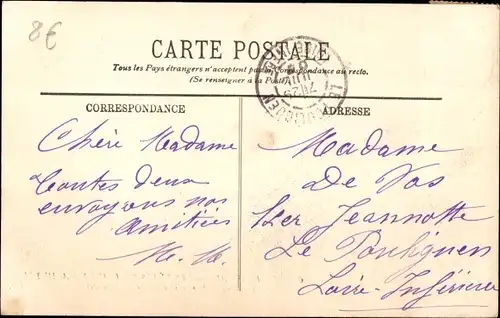 8€
CARTE POSTALE
Tous les Pays étrangers n'acceptent pas la correspondance au recto.
(Se renseigner à la Poste)
CORRESPONDANCE
Chère Madame
Toutes deux
envoyons nos
amitiés
M. M.
ADRESSE
Madame
De Vos
Ker Jeannotte
Le Pouliguen
Loire-Inférieure